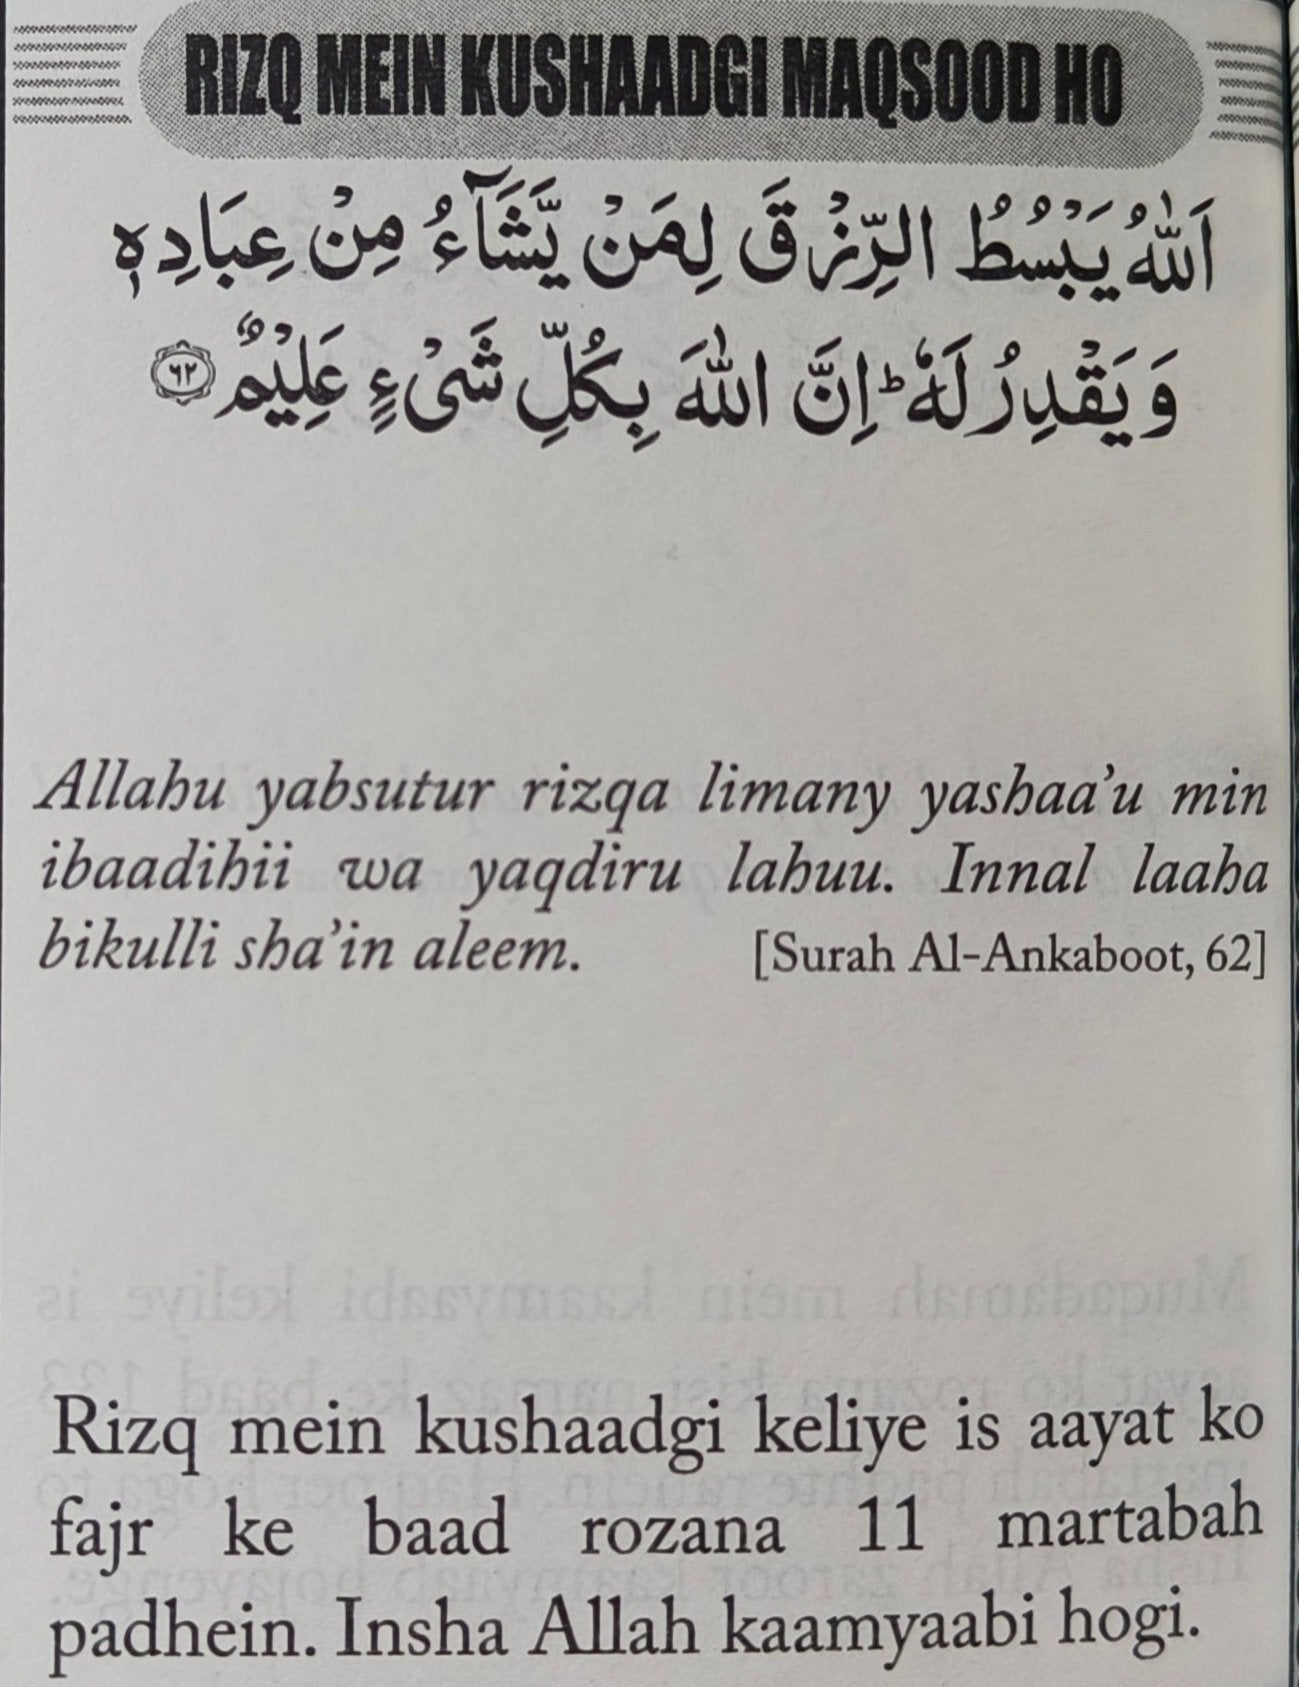 RIZQ MEIN KUSHAADGI MAQSOOD HO
اَللّٰهُ يَبْسُطُ الرِّزْقَ لِمَنْ يَّشَآءُ مِنْ عِبَادِهٖ
وَيَقْدِرُ لَهٗ ؕ اِنَّ اللّٰهَ بِكُلِّ شَیْءٍ عَلِيْمٌ ۟ ﴿٦٢﴾
Allahu yabsutur rizqa limany yashaa'u min
ibaadihii wa yaqdiru lahuu. Innal laaha
bikulli sha'in aleem. [Surah Al-Ankaboot, 62]
Rizq mein kushaadgi keliye is aayat ko
fajr ke baad rozana 11 martabah
padhein. Insha Allah kaamyaabi hogi.